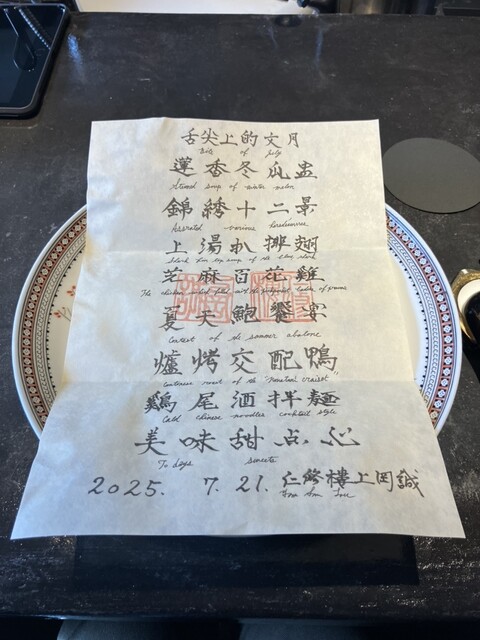 舌尖上的文月
Bite of July
蓮香冬瓜盅
Steamed soup of winter melon
錦綉十二景
Assorted various
上湯扒排翅
Shark fin soup of the blue shark
芝麻百花雞
The chicken
夏天鮑饗宴
Contest of the summer abalone
爐烤交配鴨
Cantonese roast of the
鷄尾酒拌麵
Cold chinese noodles cocktail style
美味甜点心
To days sweets
2025. 7. 21. 仁修樓上岡誠